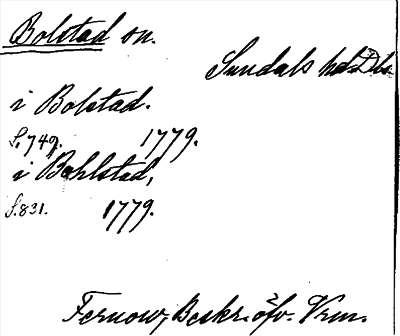 Bolstad sn.
Sundals hd Dls
i Bolstad.
S. 749. 1779.
i Bohlstad,
S. 831. 1779.
Fernow, Beskr. öfv. Vrm.